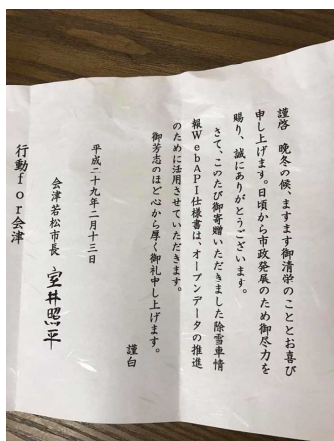 謹啓　晩冬の候、ますます御清栄のこととお喜び
申し上げます。日頃から市政発展のため御尽力を
賜り、誠にありがとうございます。
さて、このたび御寄贈いただきました除雪車情
報WebAPI仕様書は、オープンデータの推進
のために活用させていただきます。
御芳志のほど心から厚く御礼申し上げます。
謹白
平成二十九年二月十三日
会津若松市長　室井照平
行動for会津